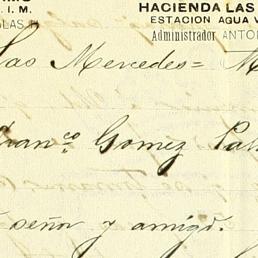 HACIENDA LAS
I. M.
ESTACION AGUA V
Administrador ANTON
Las Mercedes = M
ranco Gomez Pal
señor y amigo.